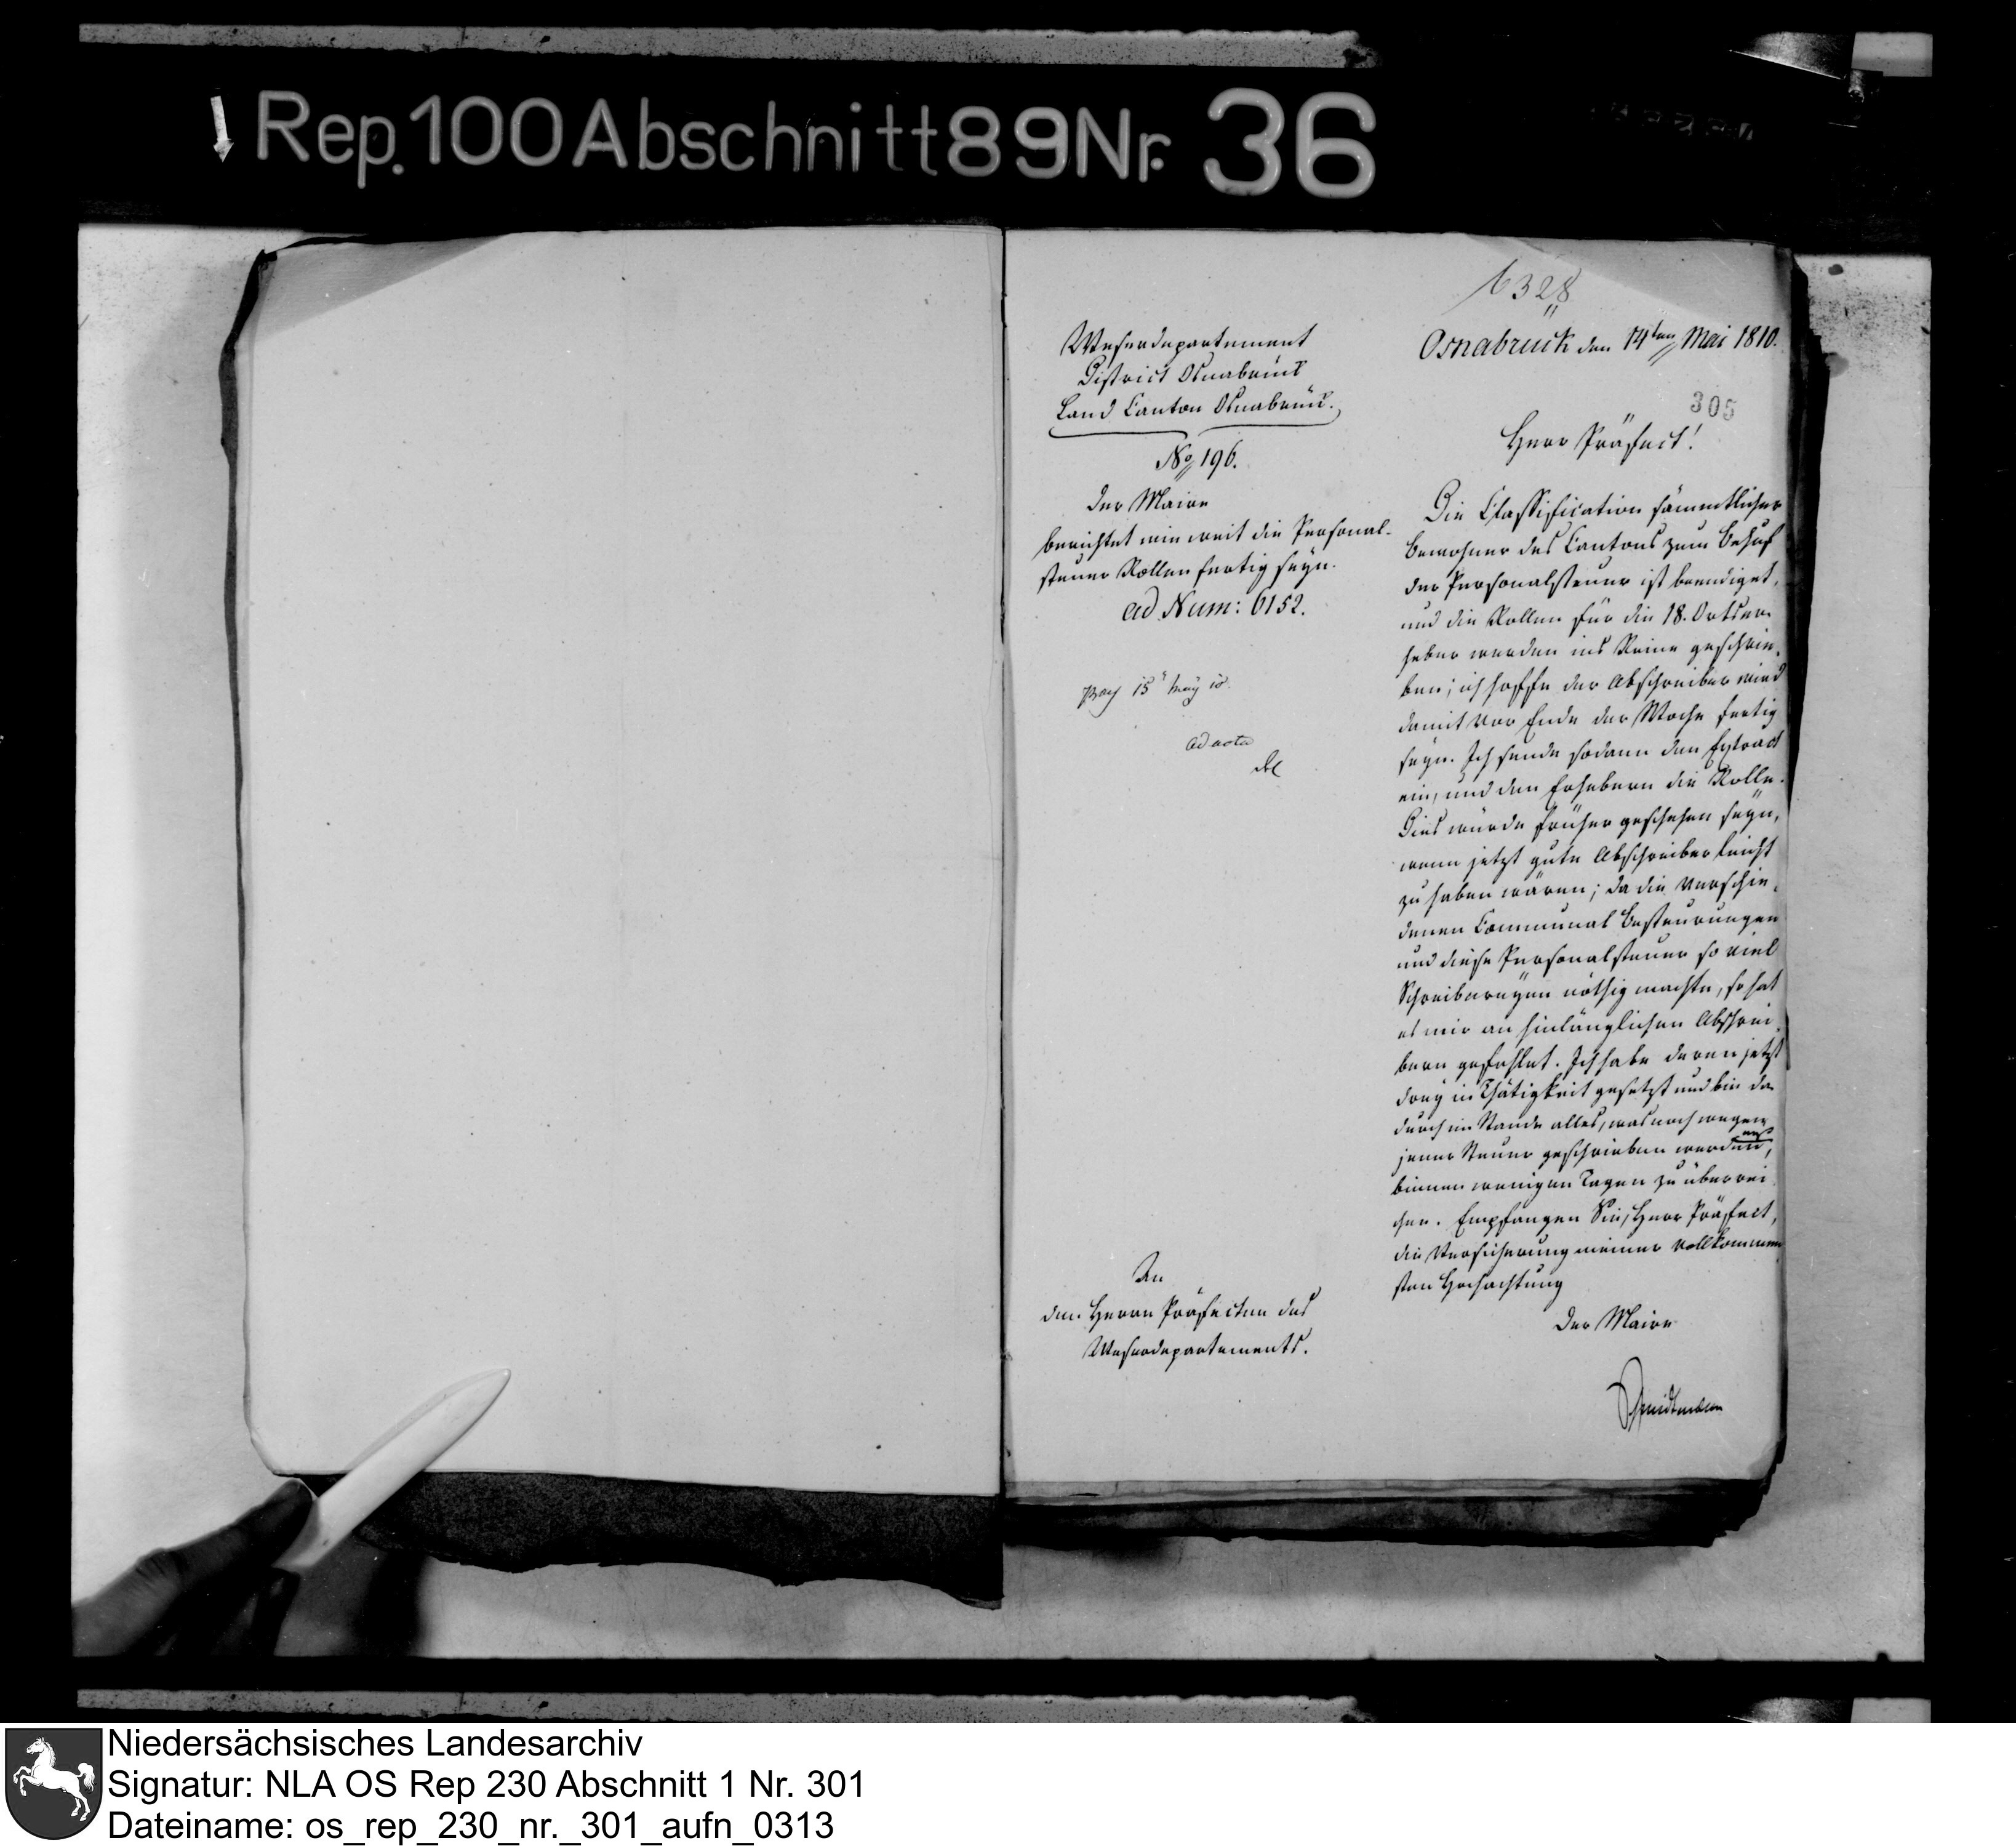 Rep. 100 Abschnitt 89 Nr. 36
6328
Weserdepartement
District Osnabrück
Land Canton Osnabrück.
No 196.
Der Maire
berichtet wie weit die Personal-
steuer Rollen fertig seyn.
ad Num: 6152.
15 May 10.
ad acta
An
den Herrn Präfecten des
Weserdepartements.
Osnabrück den 14ten Mai 1810.
305
Herr Präfect!
Die Classification sämmtlicher
Bewohner des Cantons zum Behuf
der Personalsteuer ist beendiget,
und die Rollen für die 18. Ortser-
heber werden ins Reine geschrie-
ben; ich hoffe der Abschreiber wird
damit vor Ende der Woche fertig
seyn. Ich sende sodann den Extract
ein, und den Erhebern die Rolle.
Dies würde früher geschehen seyn,
wenn jetzt gute Abschreiber leicht
zu haben wären; da die verschie-
denen Communal Besteurungen
und diese Personalsteuer so viel
Schreibereyen nöthig machte, so hat
es mir an hinlänglichen Abschrei-
bern gefehlet. Ich habe deren jetzt
drey in Thätigkeit gesetzt und bin da-
durch im Stande alles, was noch wegen
jener Steuer geschrieben werden muß,
binnen wenigen Tagen zu überrei-
chen. Empfangen Sie, Herr Präfect,
die Versicherung meiner vollkommen-
sten Hochachtung
Der Maire
Niedersächsisches Landesarchiv
Signatur: NLA OS Rep 230 Abschnitt 1 Nr. 301
Dateiname: os_rep_230_nr._301_aufn_0313